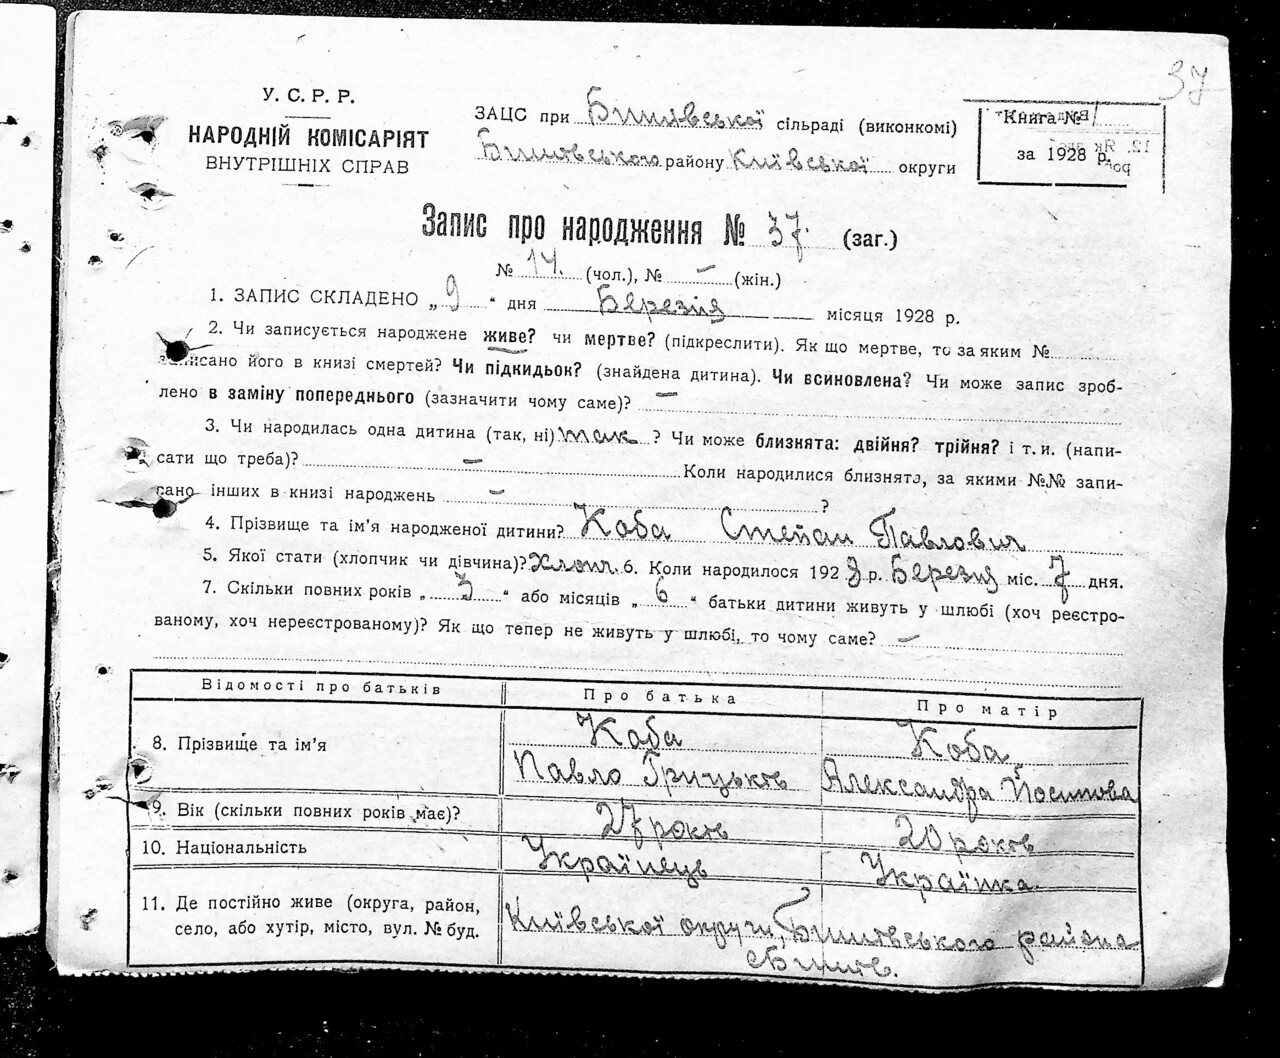 37
У. С. Р. Р.
НАРОДНІЙ КОМІСАРІЯТ
ВНУТРІШНІХ СПРАВ
ЗАЦС при Бишівської сільраді (виконкомі)
Бишівського району Київської округи
Книга № 1
за 1928 р.
Запис про народження № 37. (заг.)
№ 14. (чол.), № — (жін.)
1. ЗАПИС СКЛАДЕНО „ 9 “ дня Березня місяця 1928 р.
2. Чи записується народжене живе? чи мертве? (підкреслити). Як що мертве, то за яким №
записано його в книзі смертей? Чи підкидьок? (знайдена дитина). Чи всиновлена? Чи може запис зроб-
лено в заміну попереднього (зазначити чому саме)? —
3. Чи народилась одна дитина (так, ні) так ? Чи може близнята: двійня? трійня? і т. и. (напи-
сати що треба)? — Коли народилися близнята, за якими №№ запи-
сано інших в книзі народжень — ?
4. Прізвище та ім’я народженої дитини? Коба Степан Павлович
5. Якої стати (хлопчик чи дівчина)? Хлопч. 6. Коли народилося 192 р. Березня міс. 7 дня.
7. Скільки повних років „ 3 “ або місяців „ 6 “ батьки дитини живуть у шлюбі (хоч реєстро-
ваному, хоч нереєстрованому)? Як що тепер не живуть у шлюбі, то чому саме? —
Відомості про батьків Про батька Про матір
8. Прізвище та ім’я Коба Коба
Павло Грицьков Александра Йосипова
9. Вік (скільки повних років має)? 27 років 20 років
10. Національність Українець Українка
11. Де постійно живе (округа, район,
село, або хутір, місто, вул. № буд.
Київської округи, Бишівського района
с Бишів.